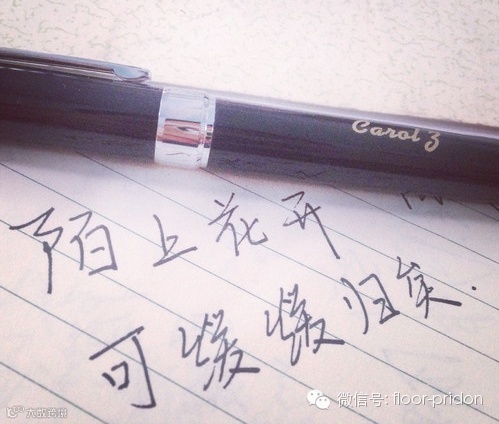 Carol Z
陌上花开
可缓缓归矣.
微信号: floor-pridon